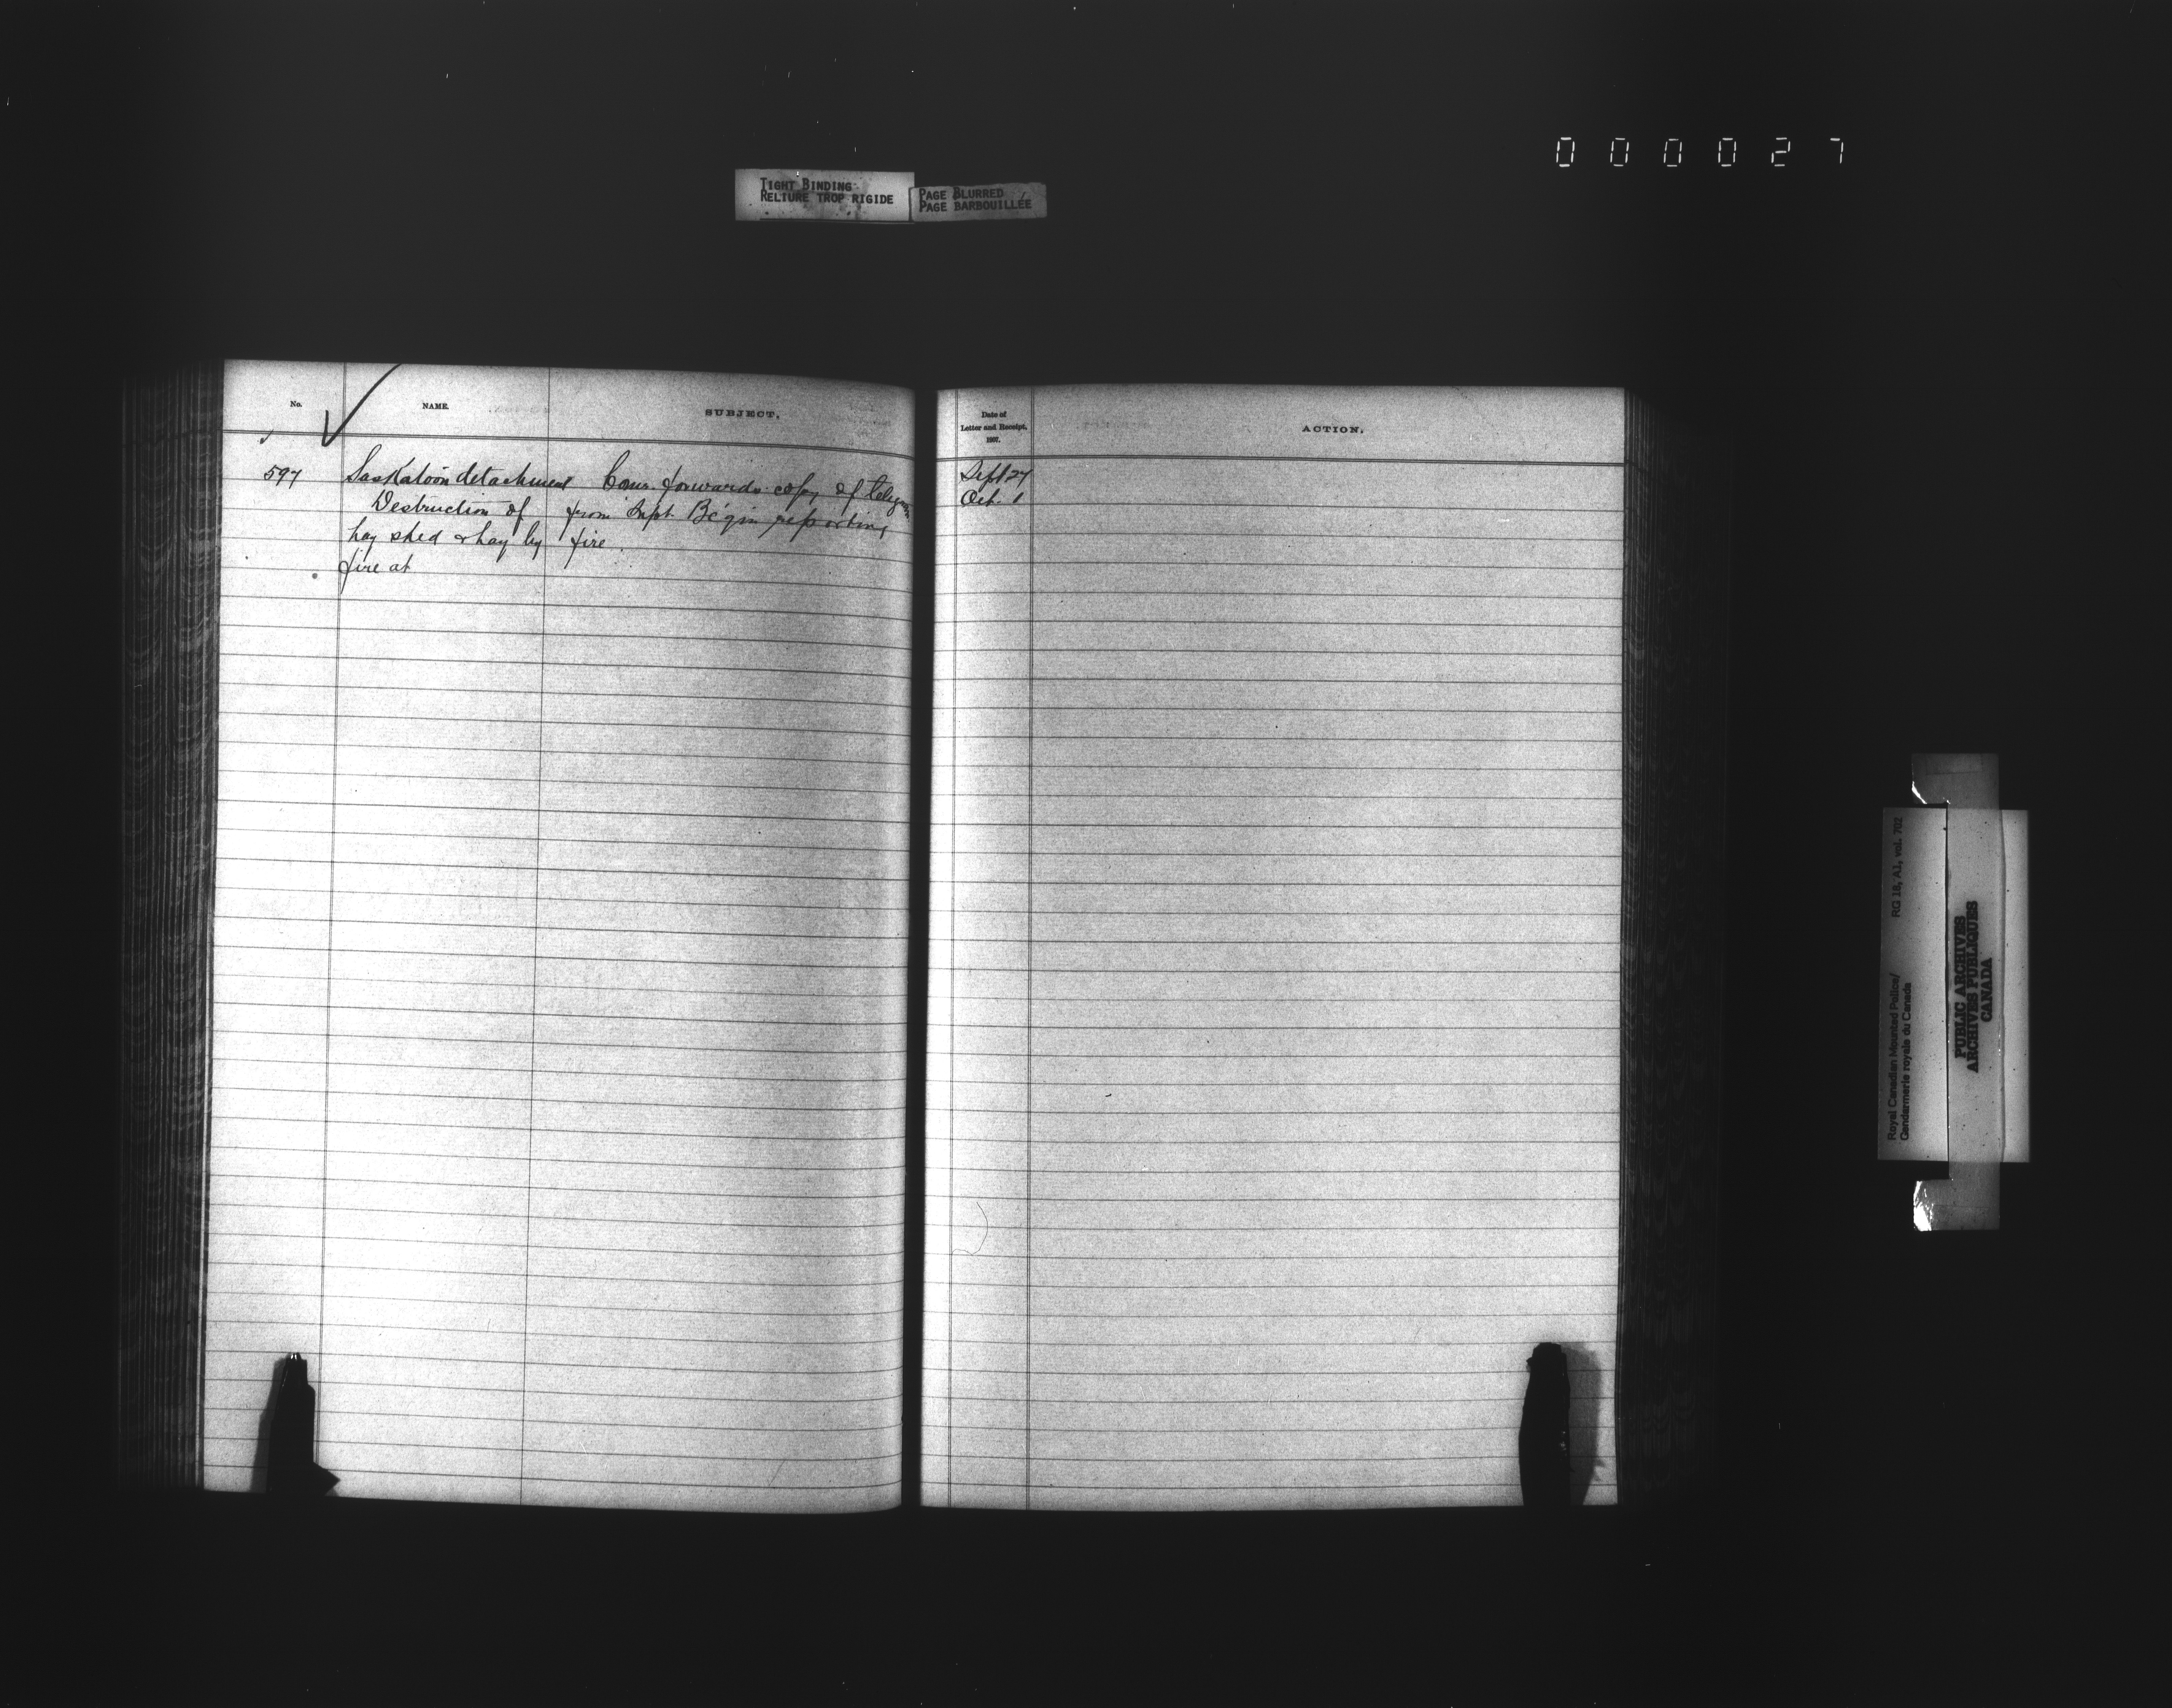 000027
TIGHT BINDING
RELIURE TROP RIGIDE
PAGE BLURRED
PAGE BARBOUILLÉE
No. NAME. SUBJECT. Date of
Letter and Receipt, ACTION.
1907.
597 Saskatoon detachment Comr. forwards copy of telegram Sept 27
Destruction of from Inspt Bégin reporting Oct. 1
hay shed & hay by fire
fire at
Royal Canadian Mounted Police/ RG 18, A1, vol. 702
Gendarmerie royale du Canada
PUBLIC ARCHIVES
ARCHIVES PUBLIQUES
CANADA